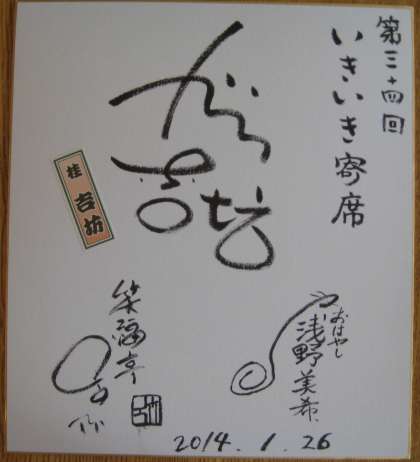 第三十四回
いきいき寄席
桂
吉坊
桂 吉坊
おはやし
浅野美希
笑福亭
2014.1.26